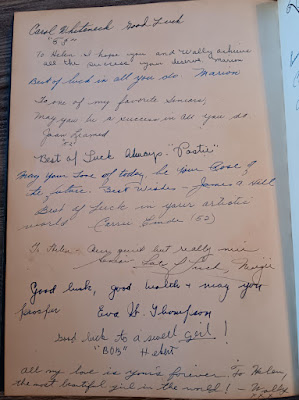 Carol Whiteneck Good Luck
"58"
To Helen, I hope you and Wally achieve
all the success your deserve Marion
Best of luck in all you do. Marion
To one of my favorite Seniors,
May you be a success in all you do.
Joan Learned
"52"
"Best of Luck Always "Postie"
May Your Love of today, be Your Love of
the future. Best Wishes - James
Best of Luck in your artistic
world" - Carrie (52)
To Helen - Very quiet but really nice
Luck,
Good luck, good health & may you
prosper Eva H. Thompson
Good luck to a swell girl!
"BOB" Hebert
all my love is your's forever. To Helen,
the most beautiful girl in the world! - Wally